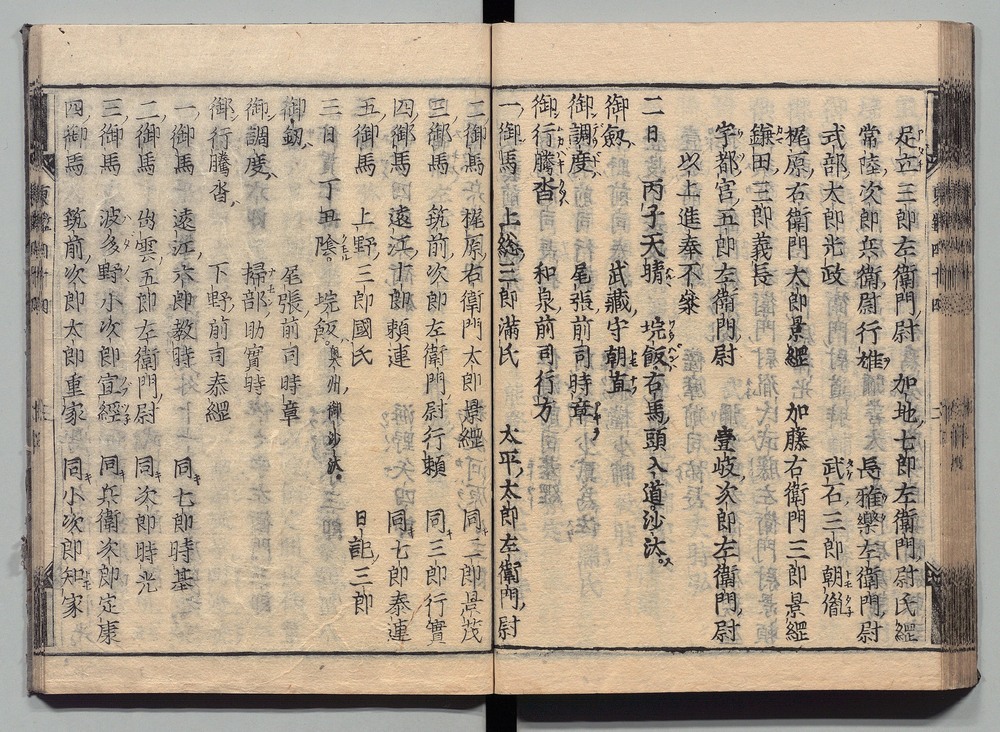 足立三郎左衛門尉 加地七郎左衛門尉氏經
常陸次郎兵衛尉行雄 長雅樂左衛門尉
式部太郎光政 武石三郎朝胤
梶原右衛門太郎景經 加藤右衛門三郎景經
鎌田三郎義長
宇都宮五郎左衛門尉 壹岐次郎左衛門尉
以上進奉不參
二日 丙子天晴 垸飯右馬頭入道沙汰
御劔 武藏守朝直
御調度 尾張前司時章
御行騰沓 和泉前司行方
一御馬 上総三郎満氏 太平太郎左衛門尉
二御馬 梶原右衛門太郎景經 同三郎景茂
三御馬 筑前次郎左衛門尉行頼 同三郎行實
四御馬 遠江十郎頼連 同七郎泰連
五御馬 上野三郎國氏 日記三郎
三日丁丑陰 垸飯奥州御沙汰
御劔 尾張前司時章
御調度 掃部助實時
御行騰沓 下野前司泰經
一御馬 遠江六郎教時 同七郎時基
二御馬 出雲五郎左衛門尉 同次郎時光
三御馬 波多野小次郎宣經 同兵衛次郎定康
四御馬 筑前次郎太郎重家 同小次郎知家